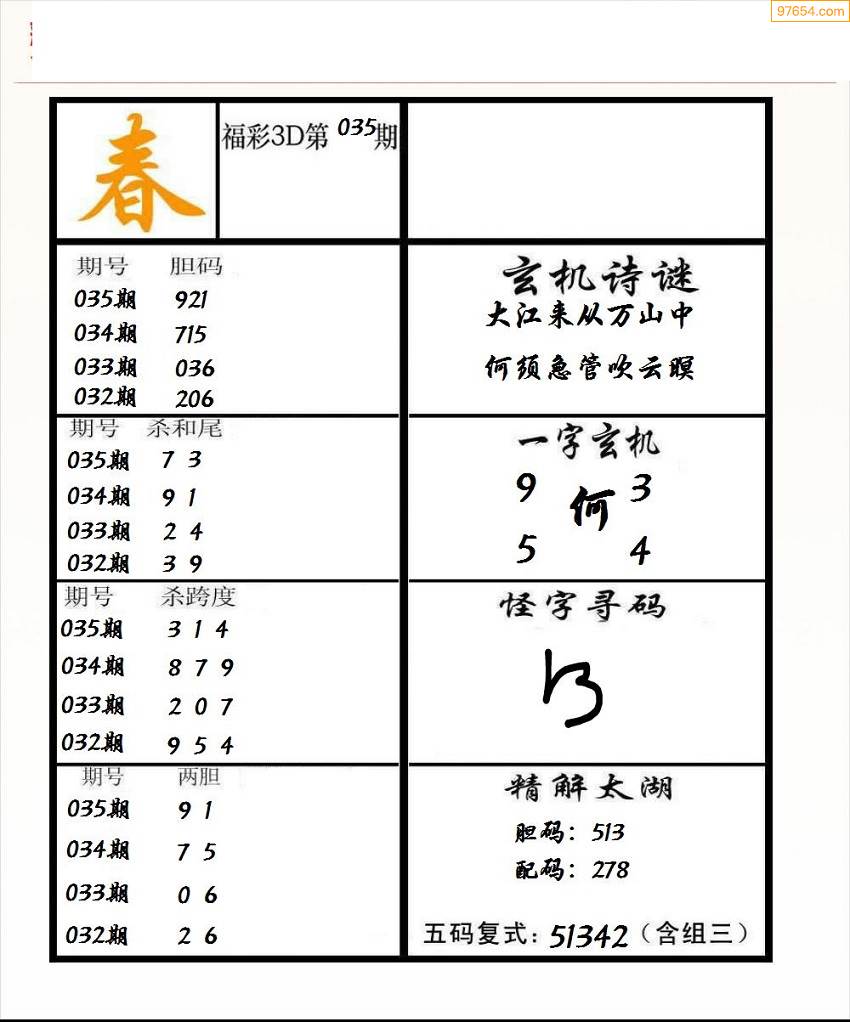 97654.com
春
福彩3D第035期
期号 胆码
035期 921
034期 715
033期 036
032期 206
期号 杀和尾
035期 7 3
034期 9 1
033期 2 4
032期 3 9
期号 杀跨度
035期 3 1 4
034期 8 7 9
033期 2 0 7
032期 9 5 4
期号 两胆
035期 9 1
034期 7 5
033期 0 6
032期 2 6
玄机诗谜
大江来从万山中
何须急管吹云暝
一字玄机
9 何 3
5 4
怪字寻码
精解太湖
胆码：513
配码：278
五码复式：51342（含组三）